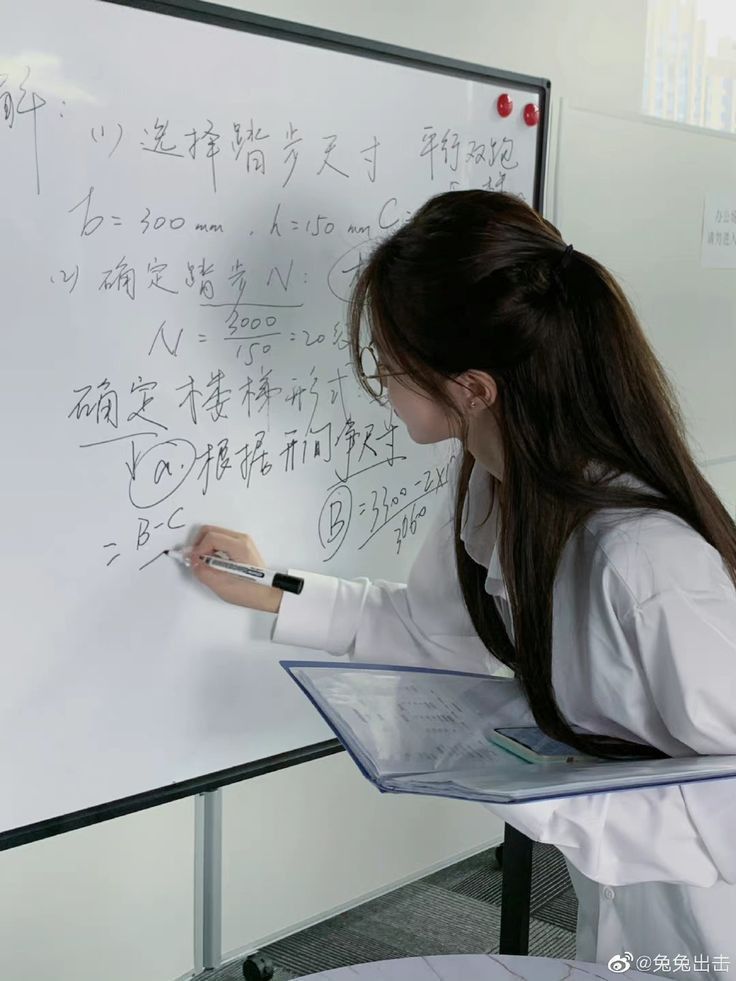 解:
(1) 选择踏步尺寸 平行双跑
b=300mm, h=150mm C=
(2) 确定踏步N:
N=3000/150=20级
确定楼梯形式
a. 根据开间净尺寸
B=3300-2×
3060
=B-C
办公
请勿进入
@兔兔出击